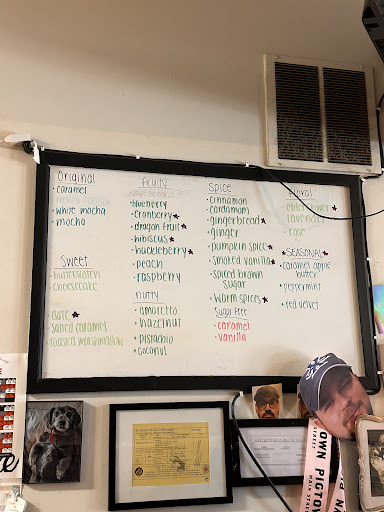 Original
• caramel
french vanilla
• white mocha
• mocha
Sweet
butterscotch
cheesecake
• cafe ★
• salted caramel
• toasted marshmallow
Fruity
• blueberry
• cranberry ★
• dragon fruit ★
• hibiscus ★
• huckleberry ★
• peach
• raspberry
nutty
• amaretto
• hazelnut
• pistachio
• coconut
SPICE
• cinnamon
• cardamom
• gingerbread ★
• ginger
• pumpkin spice ★
• smoked vanilla ★
• spiced brown
sugar
• warm spices ★
Sugar free
• caramel
• vanilla
Floral
• elderflower ★
• lavender
• rose
★SEASONAL★
• caramel apple
butter
• peppermint
• red velvet
OWN PIGTOW
MAIN STREET